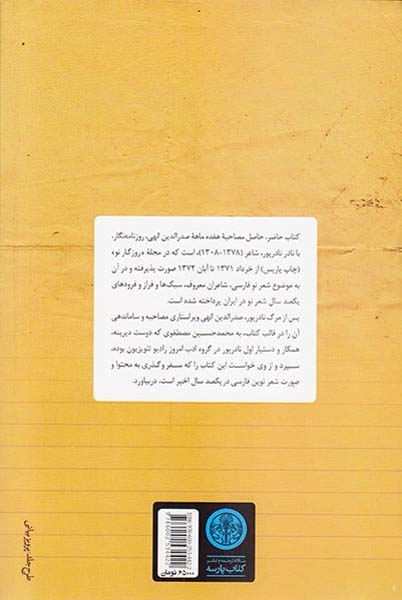 کتاب حاضر، حاصل مصاحبهٔ هفده ماههٔ صدرالدین الهی، روزنامه‌نگار،
با نادر نادرپور، شاعر (۱۳۷۸-۱۳۰۸)، است که در مجلهٔ «روزگار نو»
(چاپ پاریس) از خرداد ۱۳۷۱ تا آبان ۱۳۷۲ صورت پذیرفته و در آن
به موضوع شعر نو فارسی، شاعران معروف، سبک‌ها و فراز و فرودهای
یکصد سال شعر نو در ایران پرداخته شده است.
پس از مرگ نادرپور، صدرالدین الهی ویراستاری مصاحبه و ساماندهی
آن را در قالب کتاب، به محمدحسین مصطفوی که دوست دیرینه،
همکار و دستیار اول نادرپور در گروه ادب امروز رادیو تلویزیون بوده،
سپرد و از وی خواست این کتاب را که سفر و گذری به محتوا و
صورت شعر نوین فارسی در یکصد سال اخیر است، دربیاورد.
طرح جلد: پرویز بیانی
۶۵۰۰۰ تومان
بنگاه ترجمه و نشر
کتاب پارسه